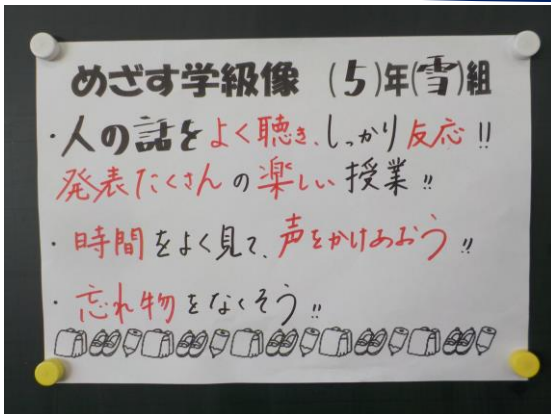 めざす学級像 (5)年(雪)組
・人の話をよく聴き、しっかり反応!!
発表たくさんの楽しい授業!!
・時間をよく見て、声をかけあおう!!
・忘れ物をなくそう!!